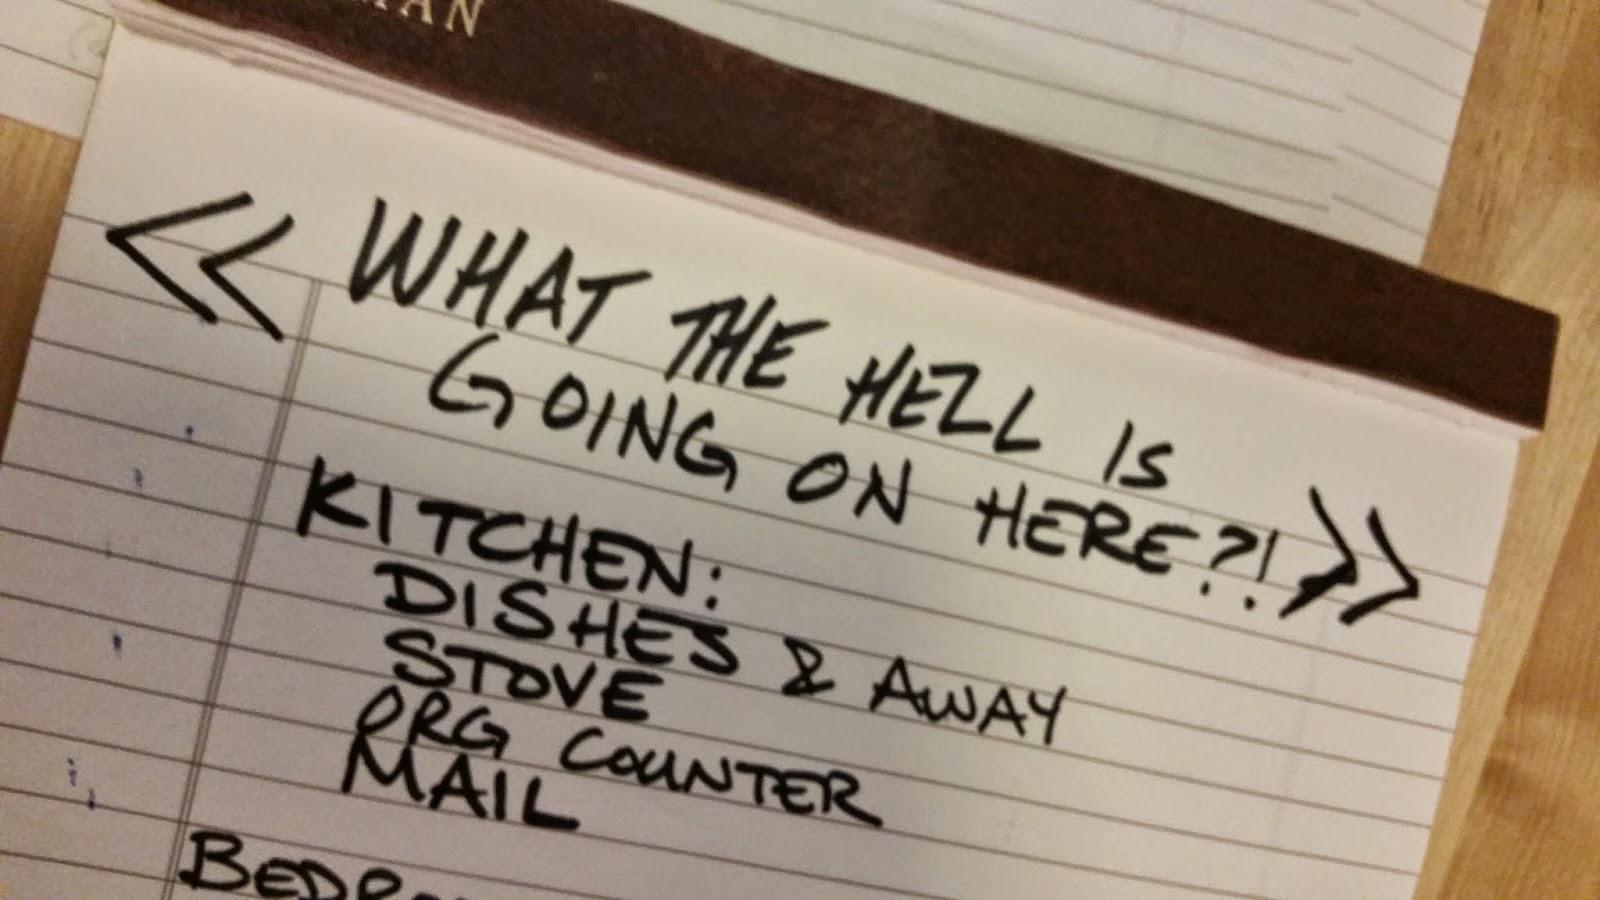 << WHAT THE HELL IS
GOING ON HERE?! >>
KITCHEN:
DISHES & AWAY
STOVE
ORG COUNTER
MAIL